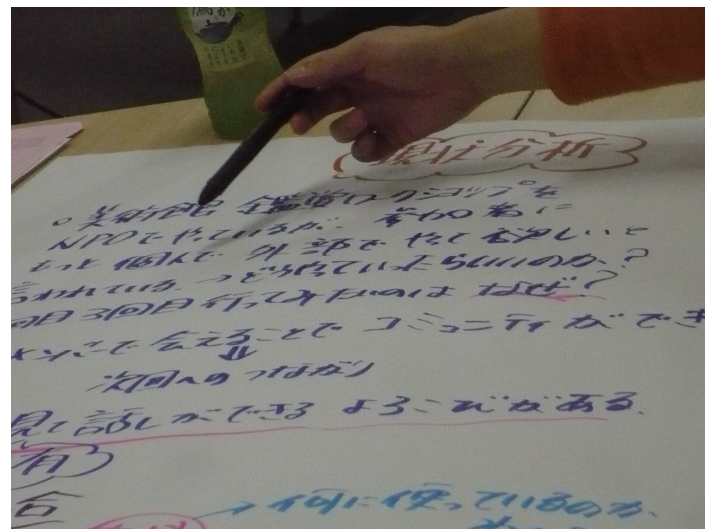 現状分析
○美術館 鑑賞ワークショップを
NPOでやっているが、参加者に
もっと個人で 外部で やって欲しいと
言われている。つどう作っていったらいいのか?
回目3回目行ってみたいのは なぜ?
メンバーで 会えることで コミュニティができ
↓
次回へのつながり
見て話しができる よろこびがある。
有
→何に使っているのか、